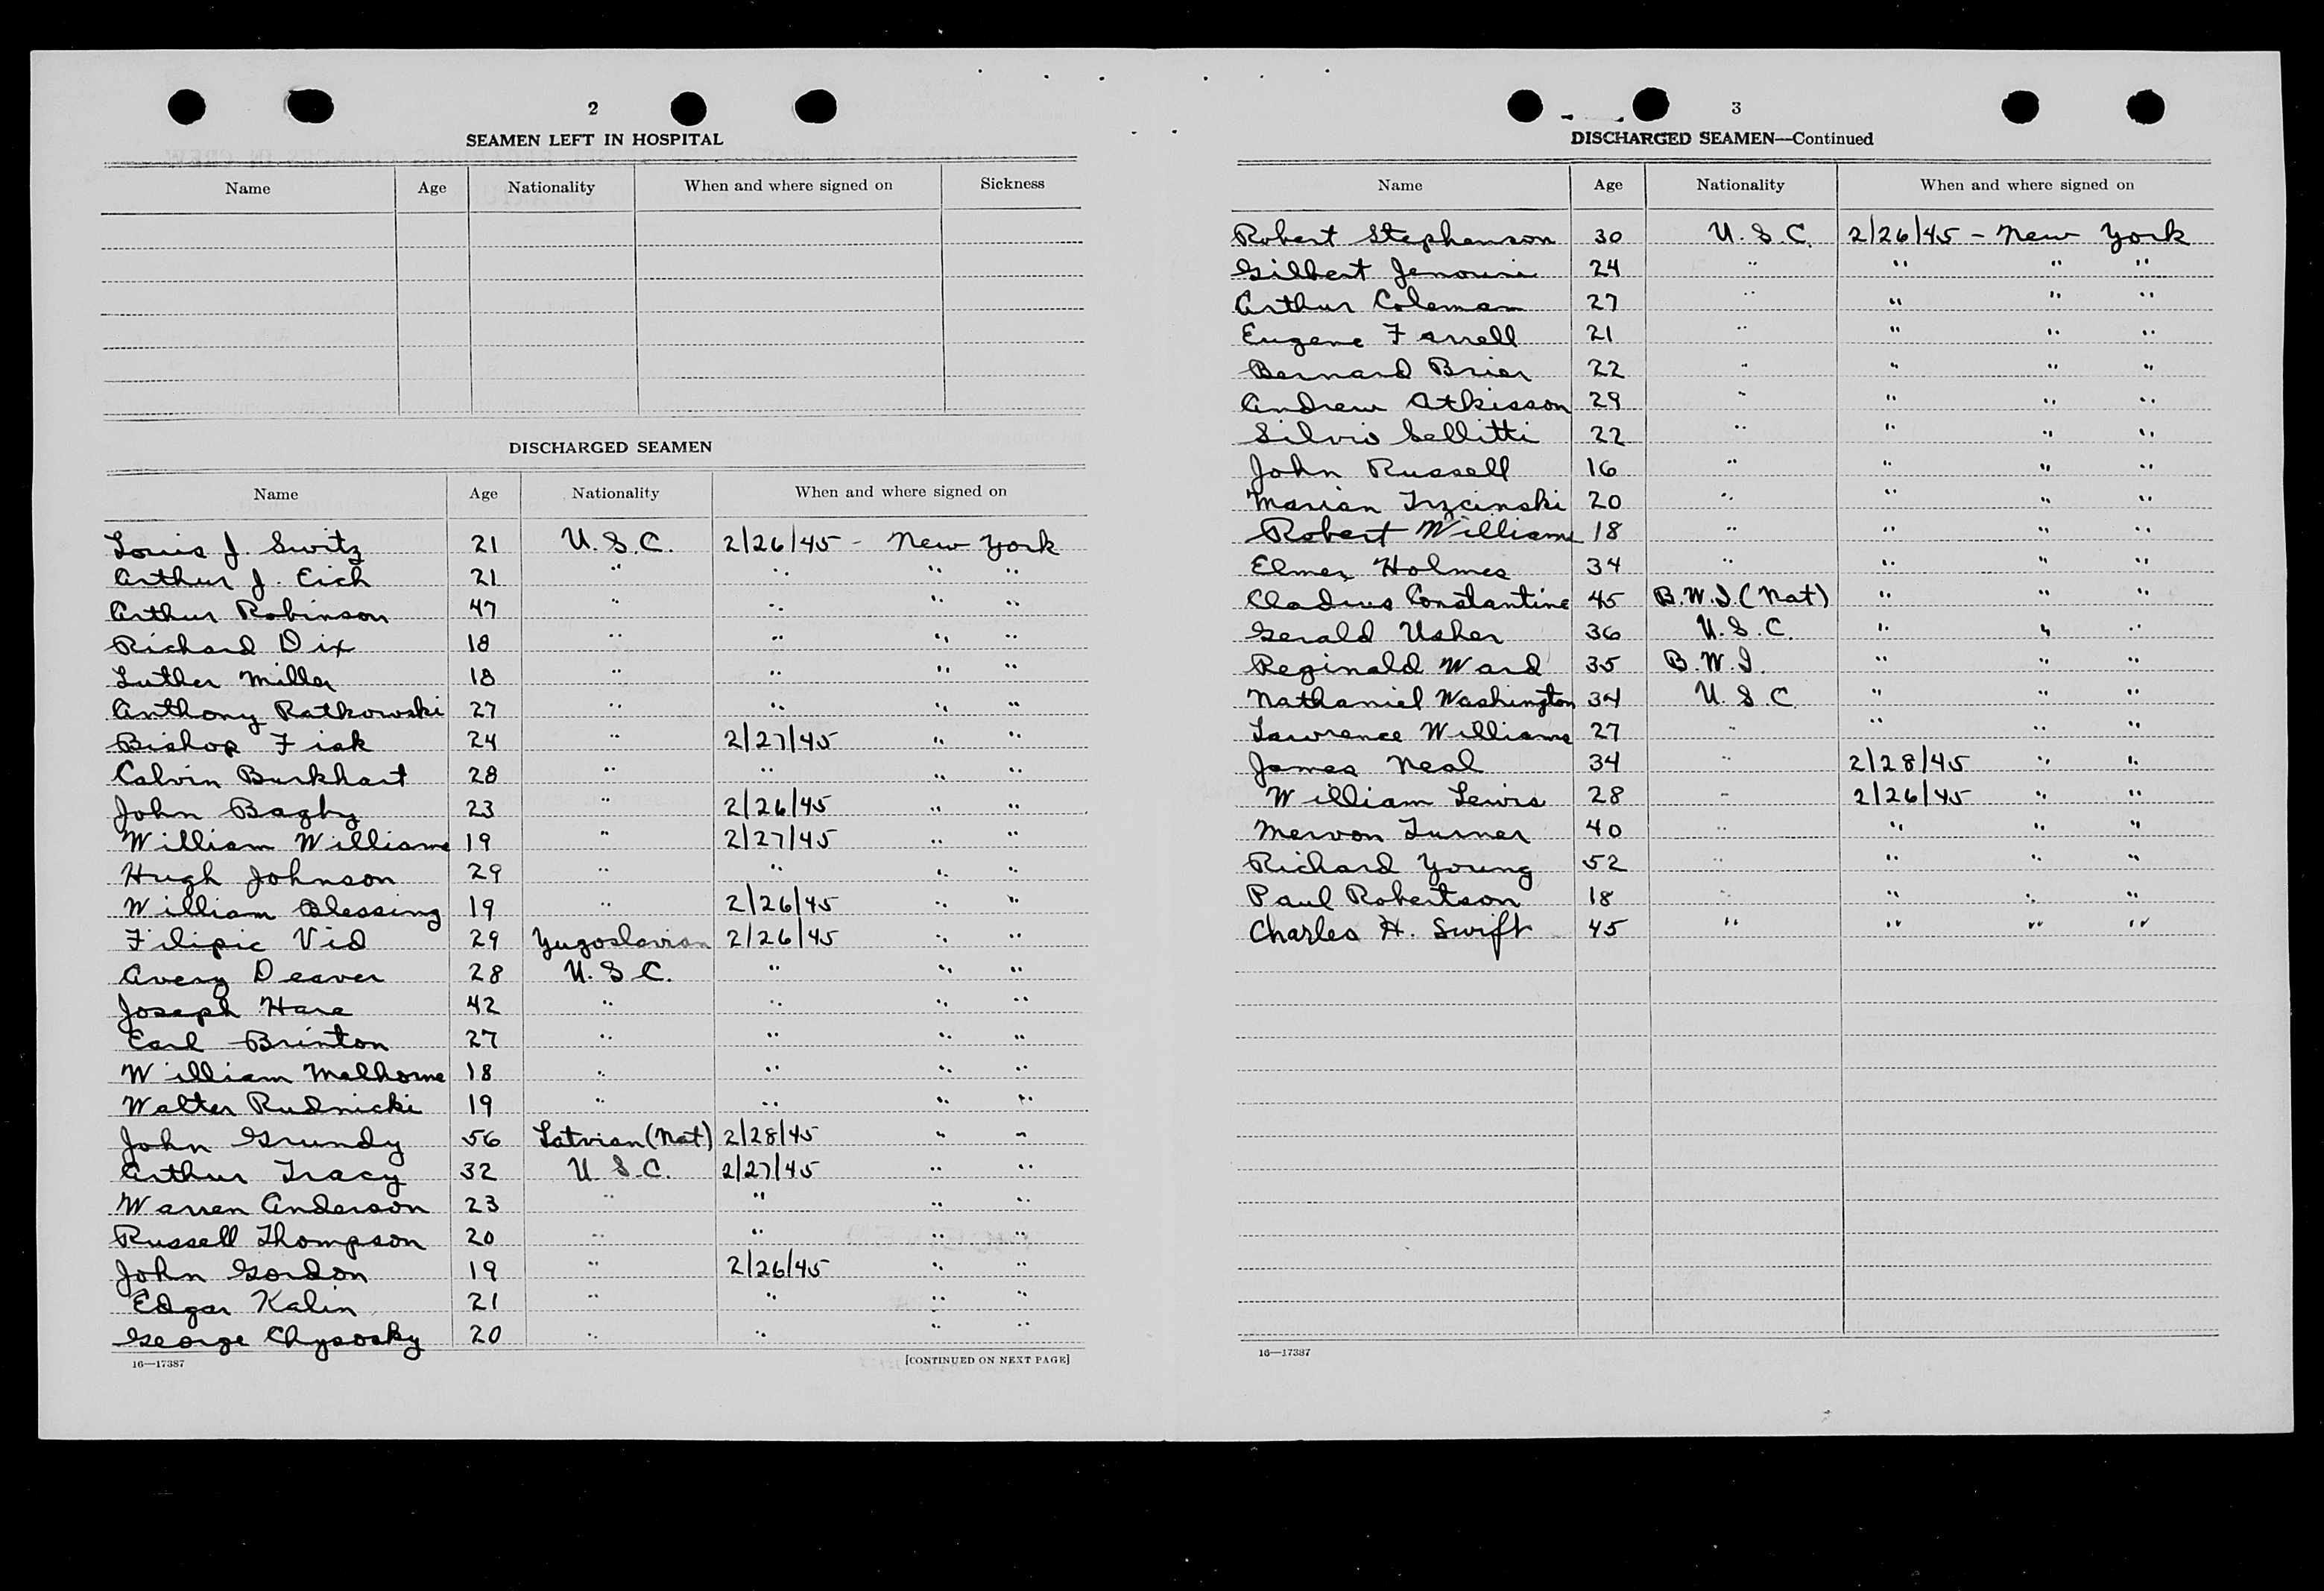 2
SEAMEN LEFT IN HOSPITAL
Name Age Nationality When and where signed on Sickness
DISCHARGED SEAMEN
Name Age Nationality When and where signed on
Louis J. Switz 21 U.S.C. 2/26/45 - New York
Arthur J. Eich 21 " " " "
Arthur Robinson 47 " " " "
Richard Dix 18 " " " "
Luther Miller 18 " " " "
Anthony Ratkowski 27 " " " "
Bishop Fisk 24 " 2/27/45 " "
Calvin Burkhart 28 " " " "
John Bagby 23 " 2/26/45 " "
William Williams 19 " 2/27/45 " "
Hugh Johnson 29 " " " "
William Blessing 19 " 2/26/45 " "
Filipic Vid 29 Yugoslavian 2/26/45 " "
Avery Deaver 28 U.S.C. " " "
Joseph Hare 42 " " " "
Earl Brinton 27 " " " "
William Malhorne 18 " " " "
Walter Rudnicki 19 " " " "
John Grundy 56 Latvian (Nat) 2/28/45 " "
Arthur Tracy 32 U.S.C. 2/27/45 " "
Warren Anderson 23 " " " "
Russell Thompson 20 " " " "
John Gordon 19 " 2/26/45 " "
Edgar Kalin 21 " " " "
George Chysosky 20 " " " "
16—17387 [CONTINUED ON NEXT PAGE]
3
DISCHARGED SEAMEN—Continued
Name Age Nationality When and where signed on
Robert Stephenson 30 U.S.C. 2/26/45 - New York
Gilbert 24 " " " "
Arthur Coleman 27 " " " "
Eugene Farrell 21 " " " "
Bernard Brier 22 " " " "
Andrew Atkisson 29 " " " "
Silvio Sellitti 22 " " " "
John Russell 16 " " " "
Marian Trzcinski 20 " " " "
Robert Williams 18 " " " "
Elmer Holmes 34 " " " "
Cladius Constantine 45 B.W.I. (Nat) " " "
Gerald Usher 36 U.S.C. " " "
Reginald Ward 35 B.W.I. " " "
Nathaniel Washington 34 U.S.C. " " "
Lawrence Williams 27 " " " "
James Neal 34 " 2/28/45 " "
William Lewis 28 " 2/26/45 " "
Mervon Turner 40 " " " "
Richard Young 52 " " " "
Paul Robertson 18 " " " "
Charles H. Swift 45 " " " "
16—17387